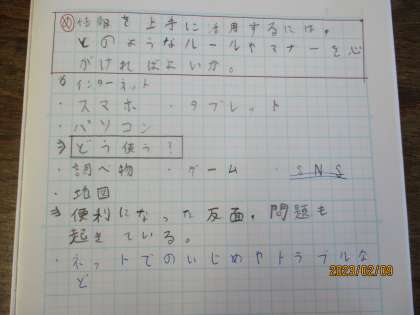 め 情報を上手に活用するには、
どのようなルールやマナーを心
がければよいか。
インターネット
・スマホ ・タブレット
・パソコン
どう使う?
・調べ物 ・ゲーム ・SNS
・地図
便利になった反面、問題も
起きている。
・ネットでのいじめやトラブルな
ど
2023/02/09